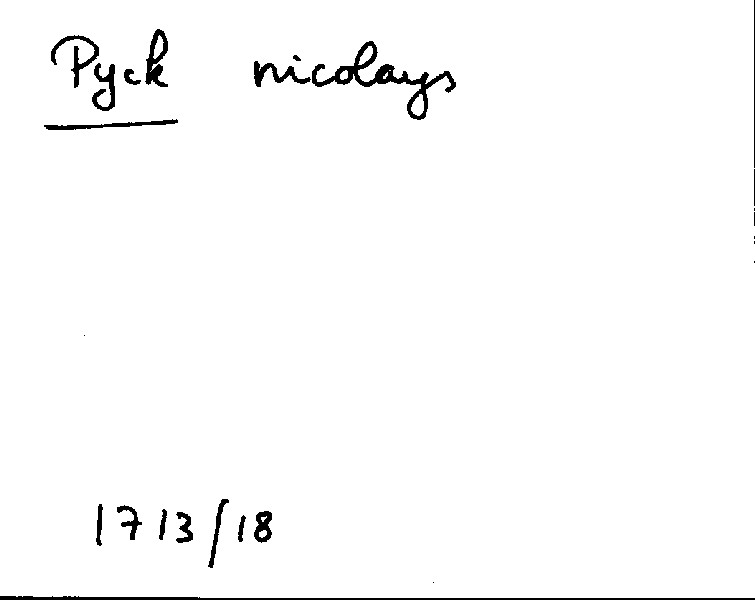 Pyck nicolays
1713/18